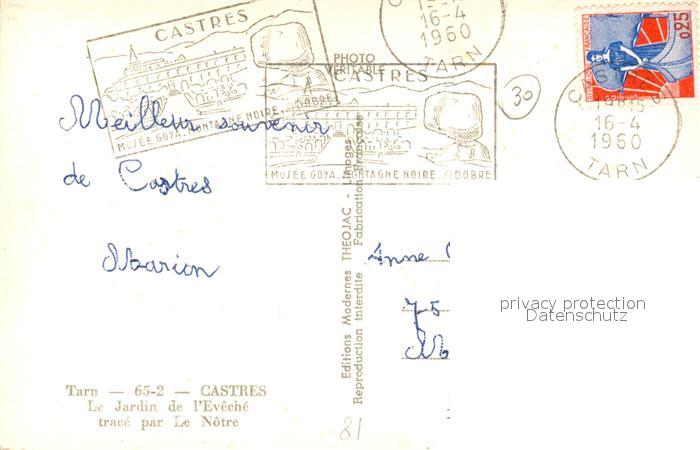 CASTRES
MUSÉE GOYA. MONTAGNE NOIRE. SIDOBRE
PHOTO
VÉRITABLE
16-4
1960
TARN
CASTRES
MUSÉE GOYA. MONTAGNE NOIRE. SIDOBRE
30
0,25
16-4
1960
TARN
Meilleur souvenir
de Castres
Marion
Editions Modernes THEOJAC - Limoges
Reproduction interdite Fabrication Française
Anne
75
privacy protection
Datenschutz
Tarn — 65-2 — CASTRES
Le Jardin de l'Evêché
tracé par Le Nôtre
81